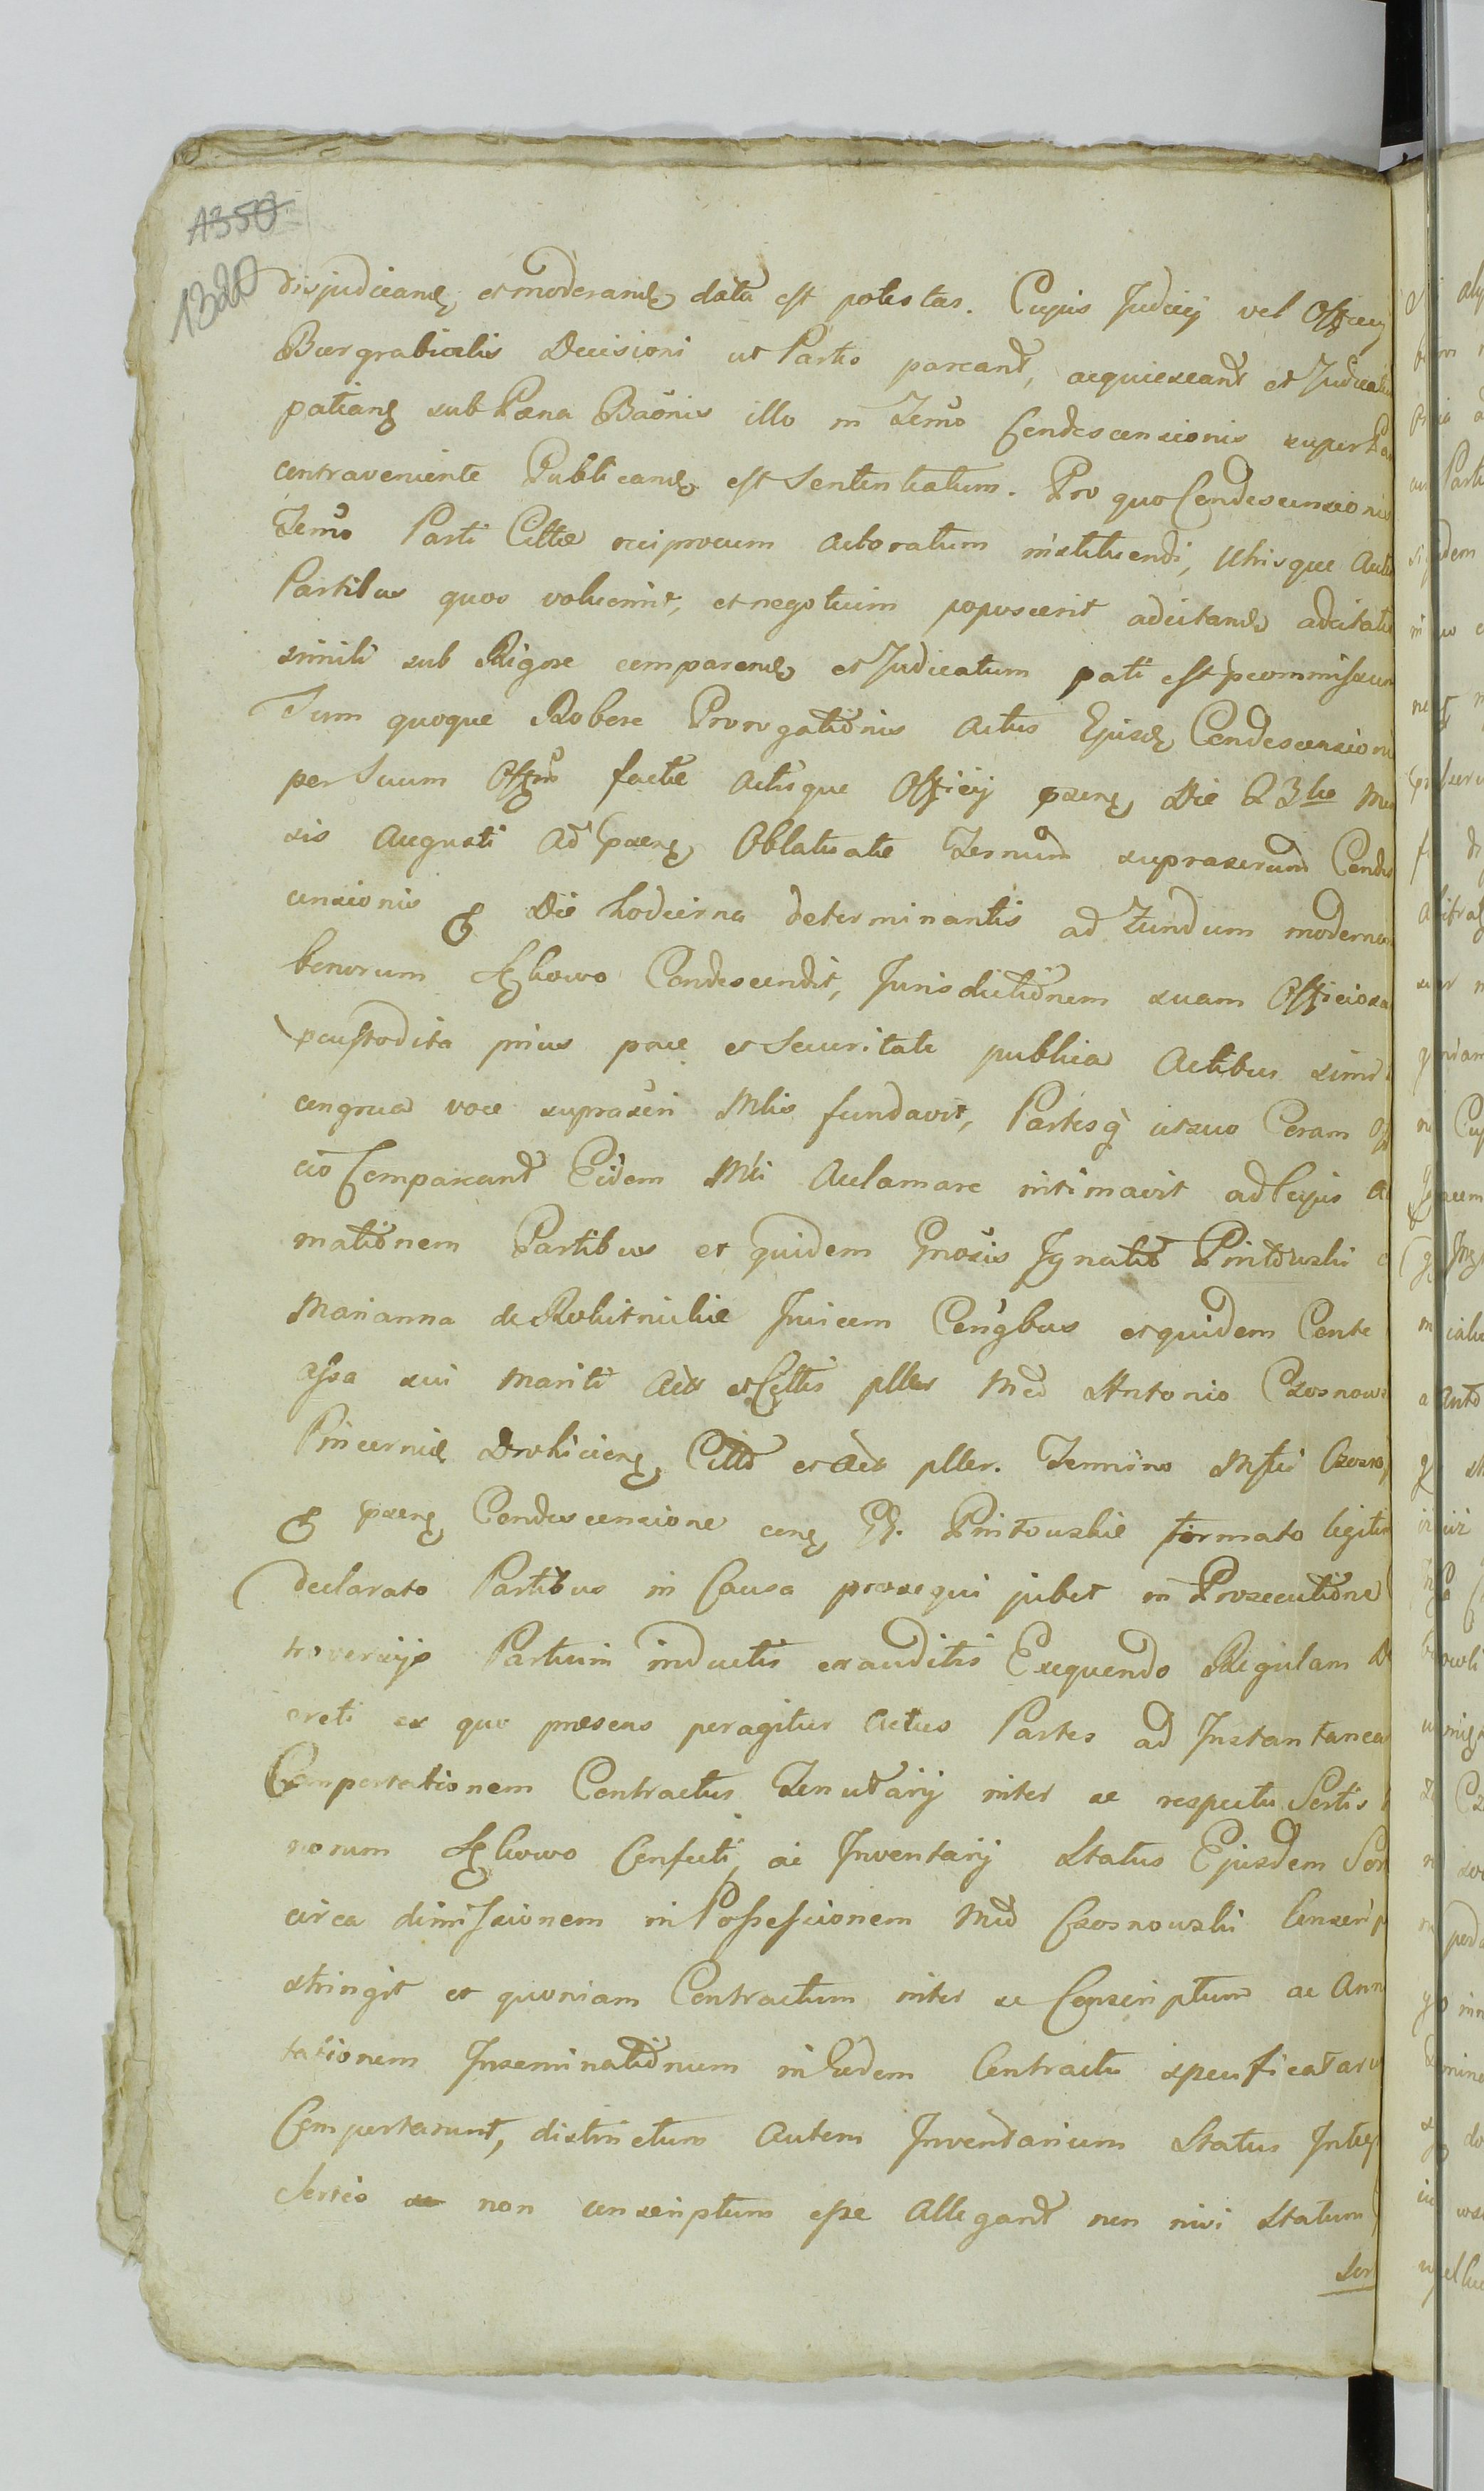 1350
1320
disjudicand et moderand data est potestas. Cujus Judicij vel Officij
Burgrabialis Decisioni ut Partes pareant, acquiescant et Judicatu
patiand sub Pœna Bañonis illo in Termō Condescensionis super Pa
contraveniente Publicand est Sententiatum. Pro quo Condescensionis
Termō Parti Cittæ reciprocum Actoratum instituendi, utrisque aute
Partibus quos voluerint, et negotium poposcerit adcitand adcitatis
simili sub Rigore comparend et Judicatum pati est pcommissum
Tum quoque Robore Prorogationis Actus Ejusd Condescensionis
per Suum Offm factæ Actisque Officij psent Die 23tia Men
sis Augusti ad psens Oblatæ Termum suprascrum Condes
censionis Die hodierna determinantis ad Fundum modernum
bonorum Condescendit, Jurisdictionem suam Officiosa
pcustodita prius pace et Securitate publica Actibus simil
congrua voce suprascri Mlis fundavit, Partesq ut suo Coram Off
cio Compareant Eidem Mli Aclamare intimavit ad Cujus Acl
mationem Partibus et quidem Gnosis Ignatio Pintowski
Marianna de Rokitnickie Invicem Congbus et quidem Conte
assa sui Mariti Act et Cittis pller Mco Antonio Czosnows
Pincernæ Drohiciens Citto et Act pller. Termino Czosno
psens Condescensione cum GG. Pintowskie formato legitim
declarato Partibus in Causa prosequi jubet in Prosecutione
troversijs Partium inductis exauditis Exequendo Regulam De
creti ex quo præsens peragitur Actus Partes ad Instantanea
Comportationem Contractus Tenutarij inter se respectu Sortis
norum Confecti, ac Inventarij Status Ejusdem Sor
circa dimissionem in Possessionem Mco Czosnowski Conscrip
stringit et quoniam Contractum inter se Conscriptum ac Ann
tationem Inseminationum in Eodem Contractu specificataru
Comportarunt, distinctum autem Inventarium Status Integ
Sortis non conscriptum esse Allegant non nisi Statum
Sor